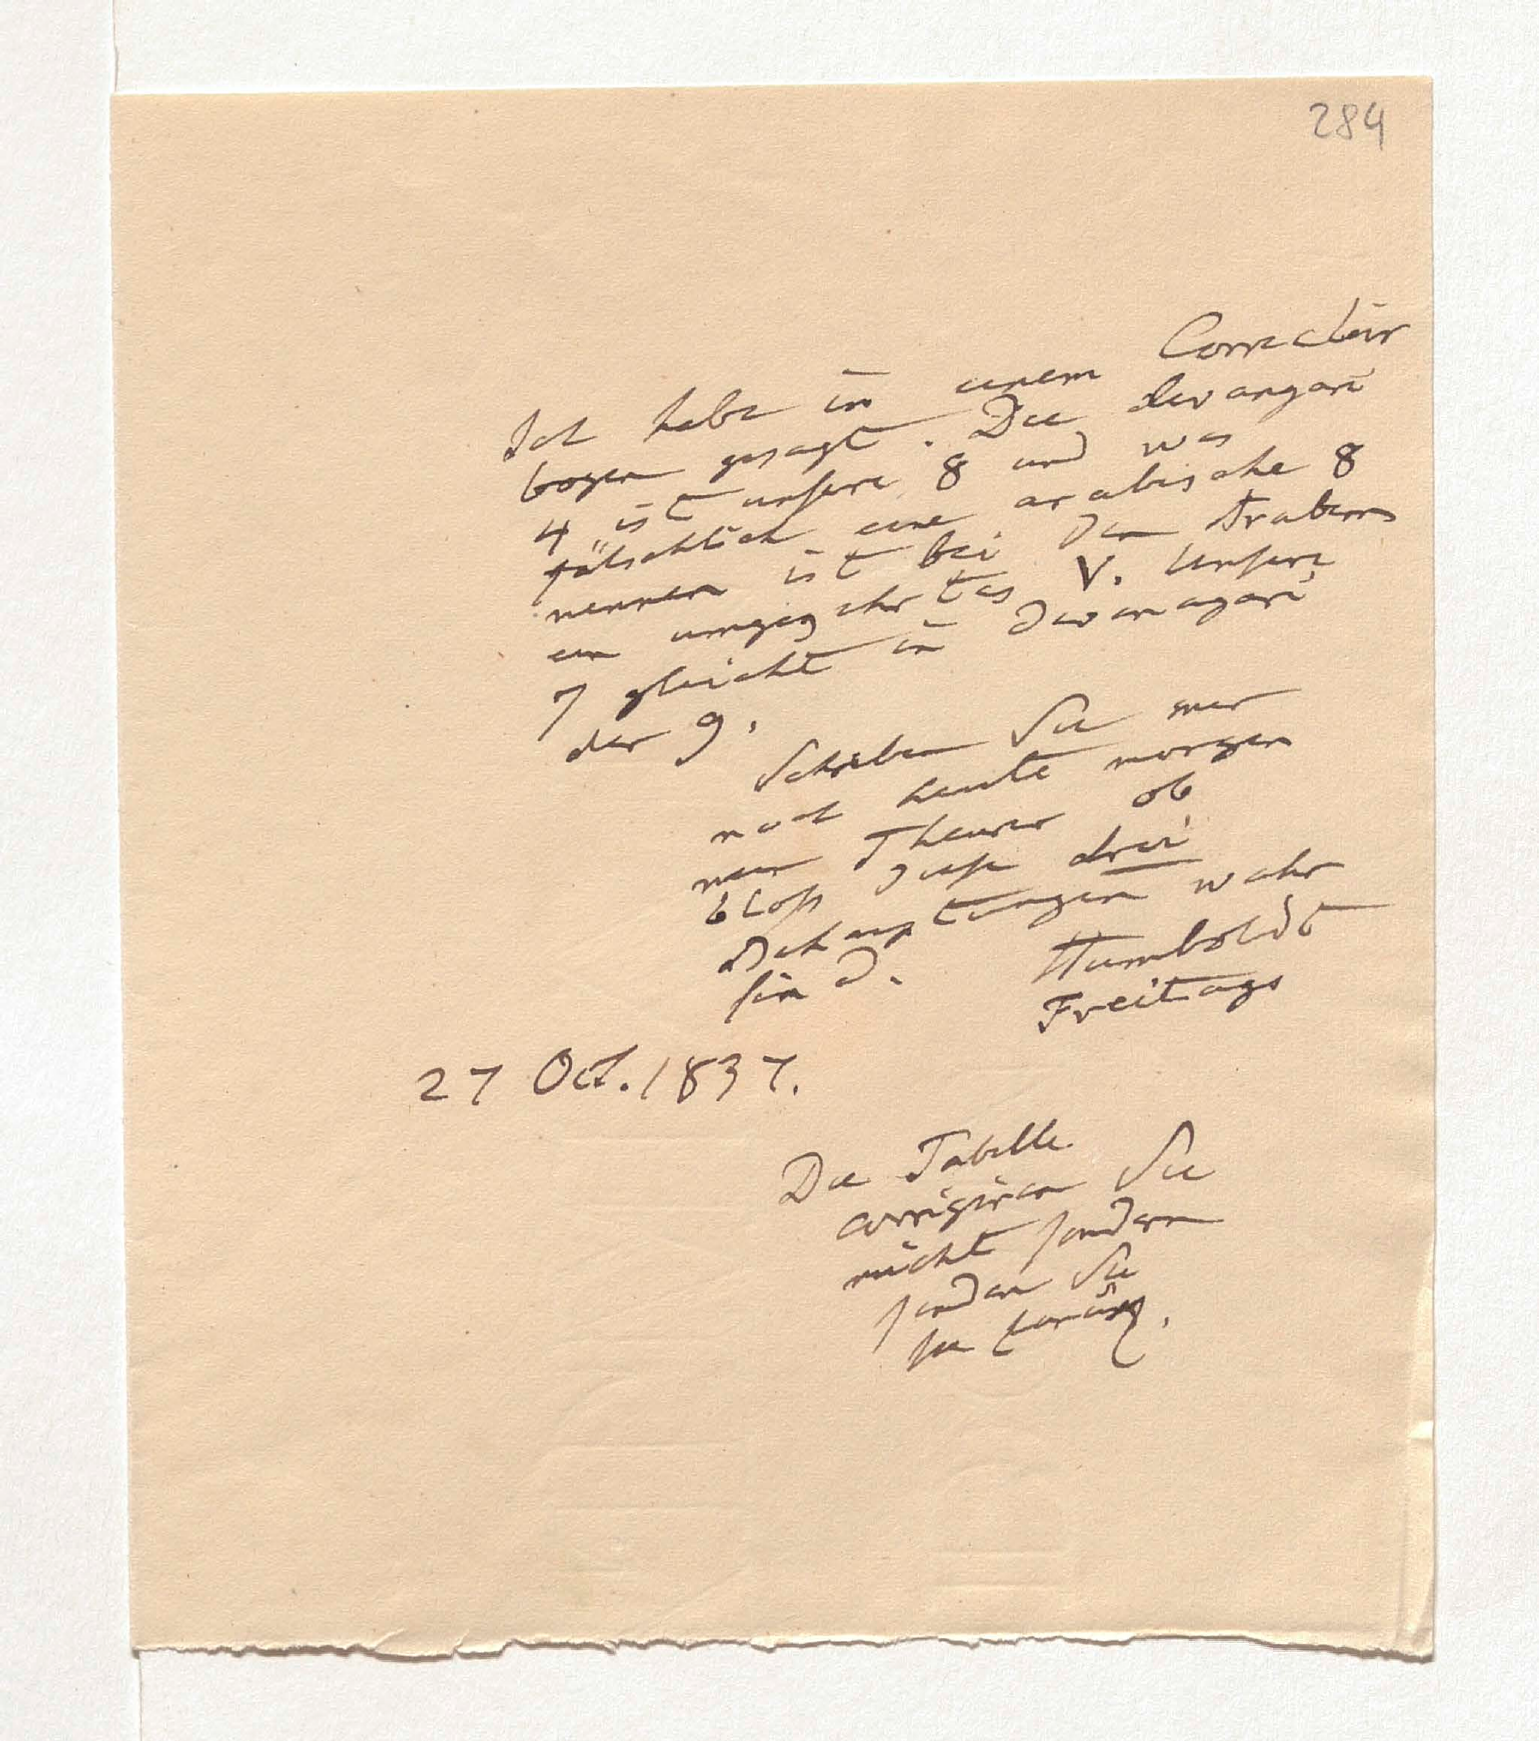 284
Ich habe in einem Correctur
bogen gesagt. Die devangari
4 ist unsere 8 und was
fälschlich eine arabische 8
nennen ist bei den Arabern
ein umgegehrtes V. Unsere
7 gleicht in Devanagari
der 9.
Schreiben Sie mir
noch heute morgen
mein Theurer ob
bloß diese drei
Behauptungen wahr
sind.
Humboldt
Freitags
27 Oct. 1837.
Die Tabelle
corrigiren Sie
nicht sondern
senden Sie
sie zurük.